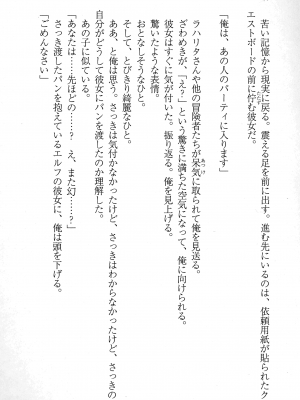 苦い記憶から現実に戻る。震える足を前に出す。進む先にいるのは、依頼用紙が貼られたク
エストボードの前に佇む彼女だ。
「俺は、あの人のパーティに入ります」
ラハリタさんや他の冒険者たちが呆気に取られて俺を見送る。
ざわめきが、「えっ？」という驚きに満ちた空気になって、俺に向けられる。
彼女はすぐに気が付いた。振り返る。俺を見上げる。
驚いたような表情。
おとなしそうなひと。
そして、とびきり綺麗なひと。
ああ、と俺は思う。さっきは気付かなかったけど、さっきはわからなかったけど、さっきの
自分がどうして彼女にパンを渡したのか理解した。
あの子に似ている。
「あなたは……先ほどの……？　え、また🈁……？」
さっき渡したパンを抱えているエルフの彼女に、俺は頭を下げる。
「ごめんなさい」